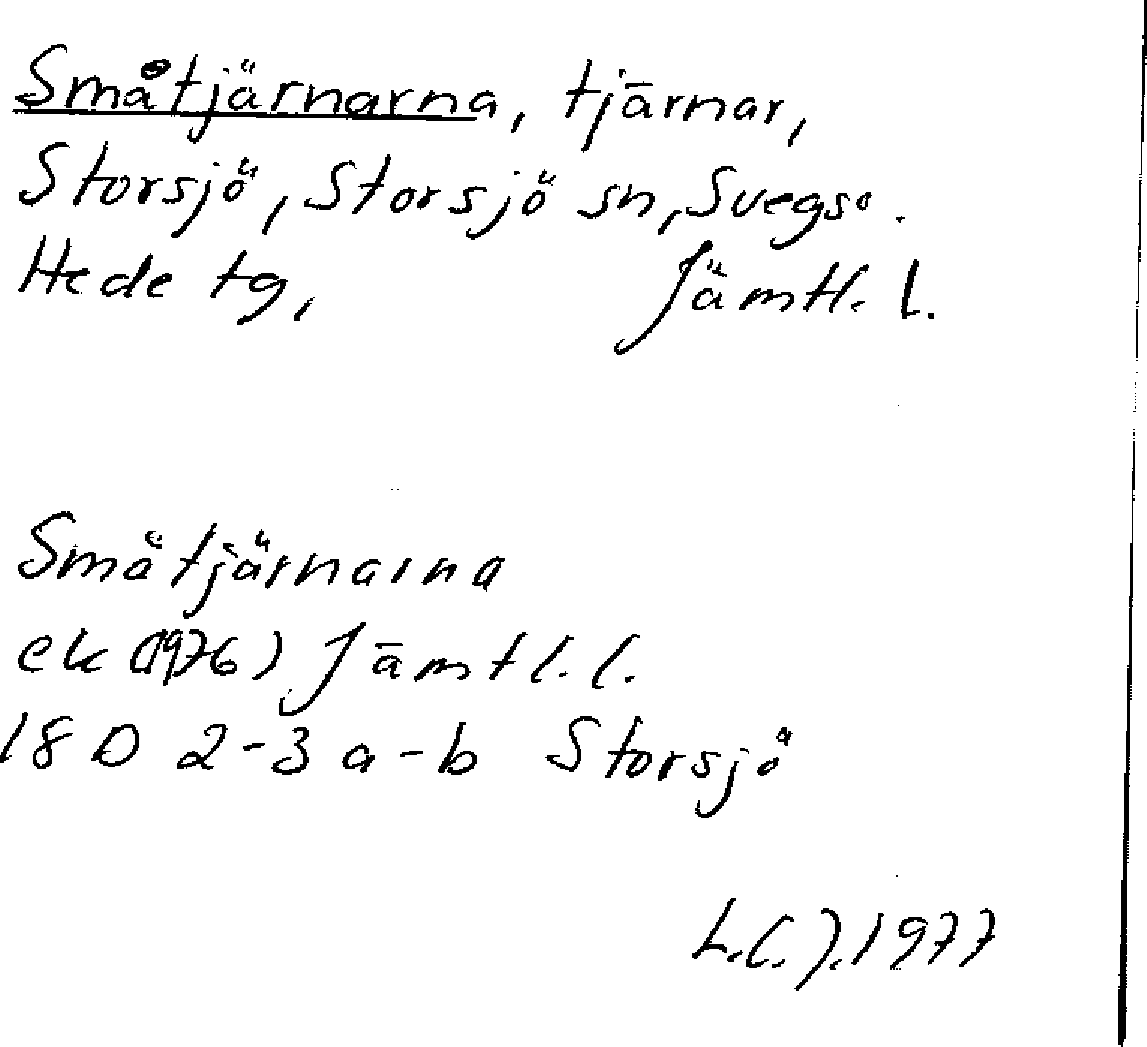 Småtjärnarna, tjärnar,
Storsjö, Storsjö sn, Svegs
Hede tg, Jämtl. l.
Småtjärnarna
ek (1976) Jämtl. l.
18 D 2-3 a-b Storsjö
1977